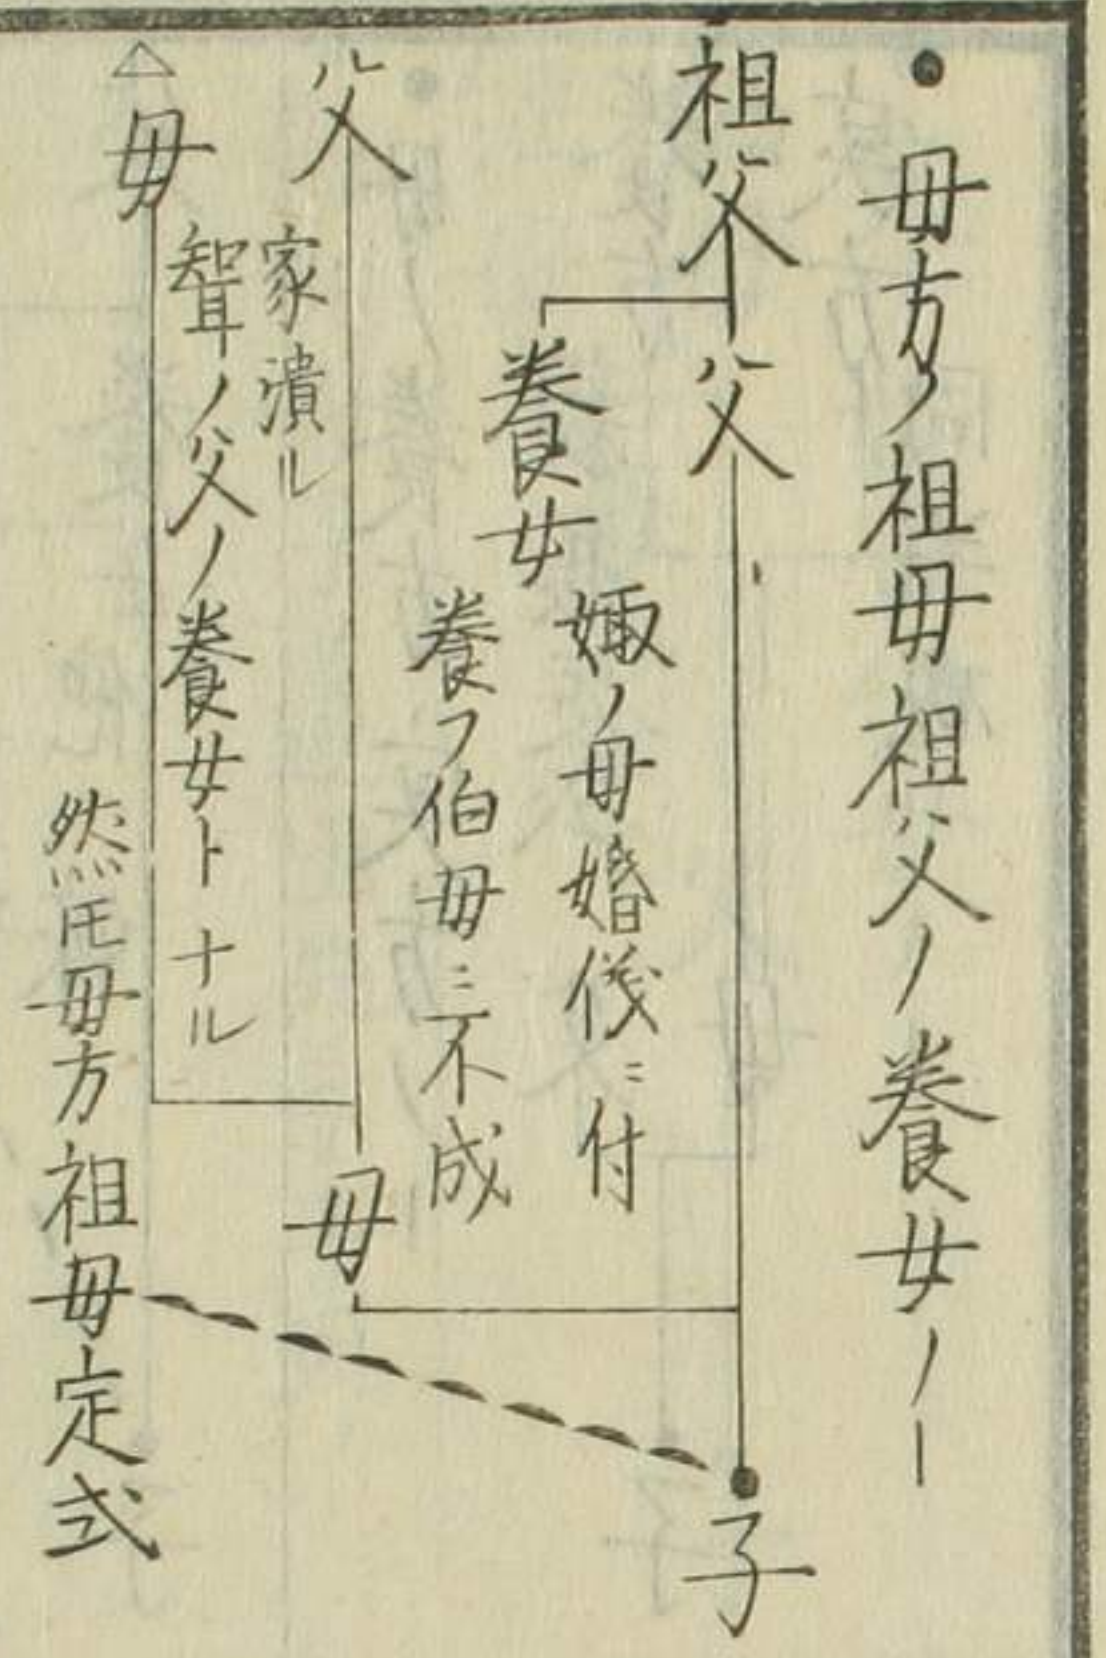 ● 母方ノ祖母祖父ノ養女ノヿ
祖父
父
子
養女
娵ノ母婚儀ニ付
養フ伯母ニ不成
父
家潰ル
聟ノ父ノ養女トナル
母
△母
然𪜈母方祖母定式